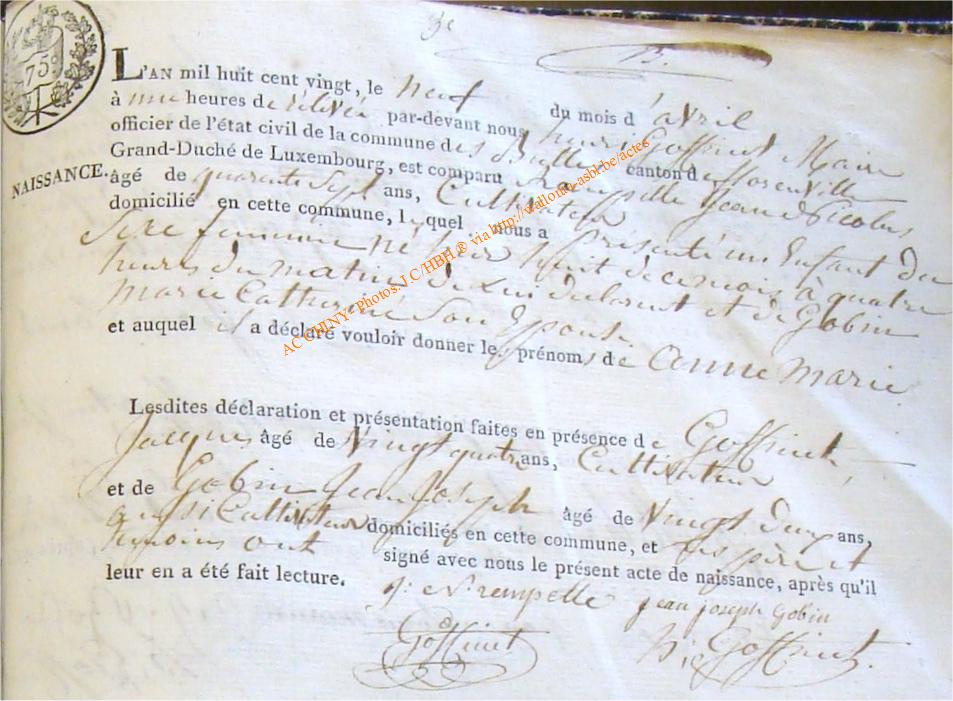 3e
75
NAISSANCE.
L'AN mil huit cent vingt, le neuf du mois d'avril
à une heures de relevée par-devant nous henri Goffinet Maire
officier de l'état civil de la commune des Bulles canton de florenville
Grand-Duché de Luxembourg, est comparu Rempelle Jean Nicolas
âgé de quarente Sept ans, Cultivateur
domicilié en cette commune, lequel nous a Présenté un Enfant du
Sexe feminin né hier huit de ce mois à quatre
heures du matin de Lui declarant et de Gobin
Marie Catherine Son Epouse.
et auquel il a déclaré vouloir donner les prénoms de anne marie
Lesdites déclaration et présentation faites en présence de Goffinet
Jacques âgé de Vingt quatre ans, Cultivateur
et de Gobin Jean Joseph âgé de Vingt deux ans,
aussi Cultivateur domiciliés en cette commune, et les père et
temoins ont signé avec nous le présent acte de naissance, après qu'il
leur en a été fait lecture.
j: n: rempelle jean joseph Gobin
Goffinet
hie Goffinet.
AC CHINY- Photos J.C/HBH ® via http://wallonia-asbl.be/actes